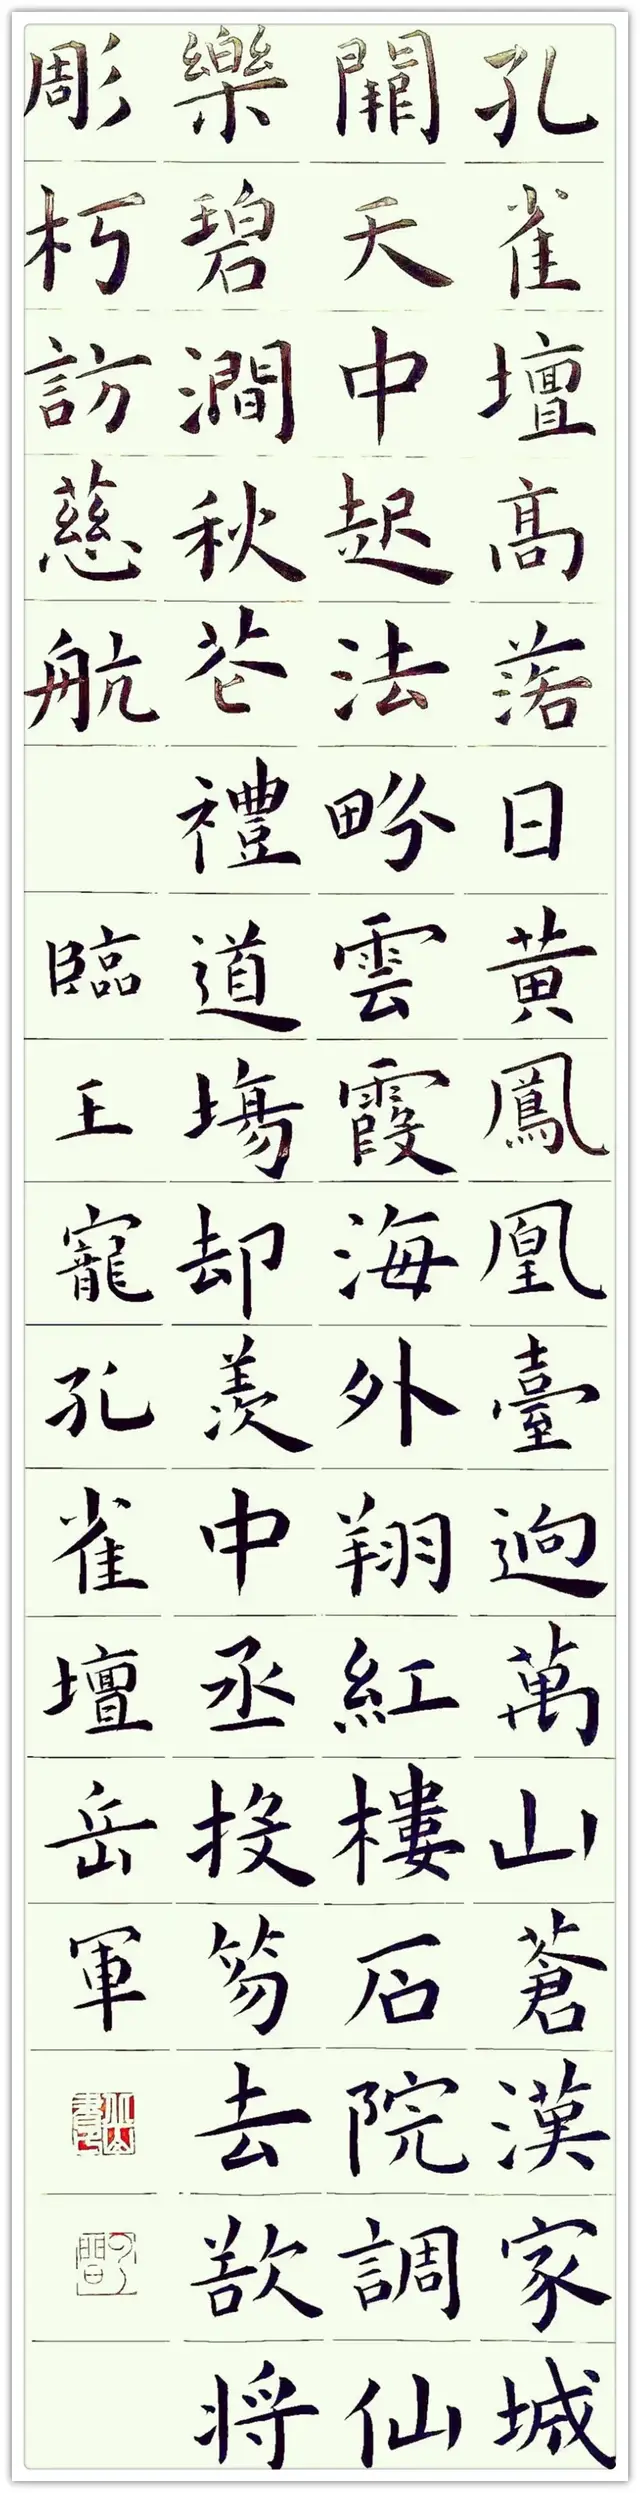 孔雀壇高落日黃鳳凰臺迥萬山蒼漢家城
開天中起法畍雲霞海外翔紅樓石院調仙
樂碧澗秋花禮道塲却羨中丞投笏去欲将
彫朽訪慈航
臨王寵孔雀壇岳軍